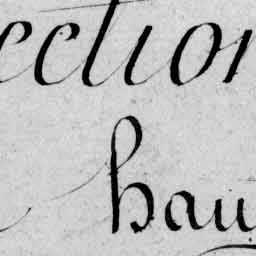 ection
hau